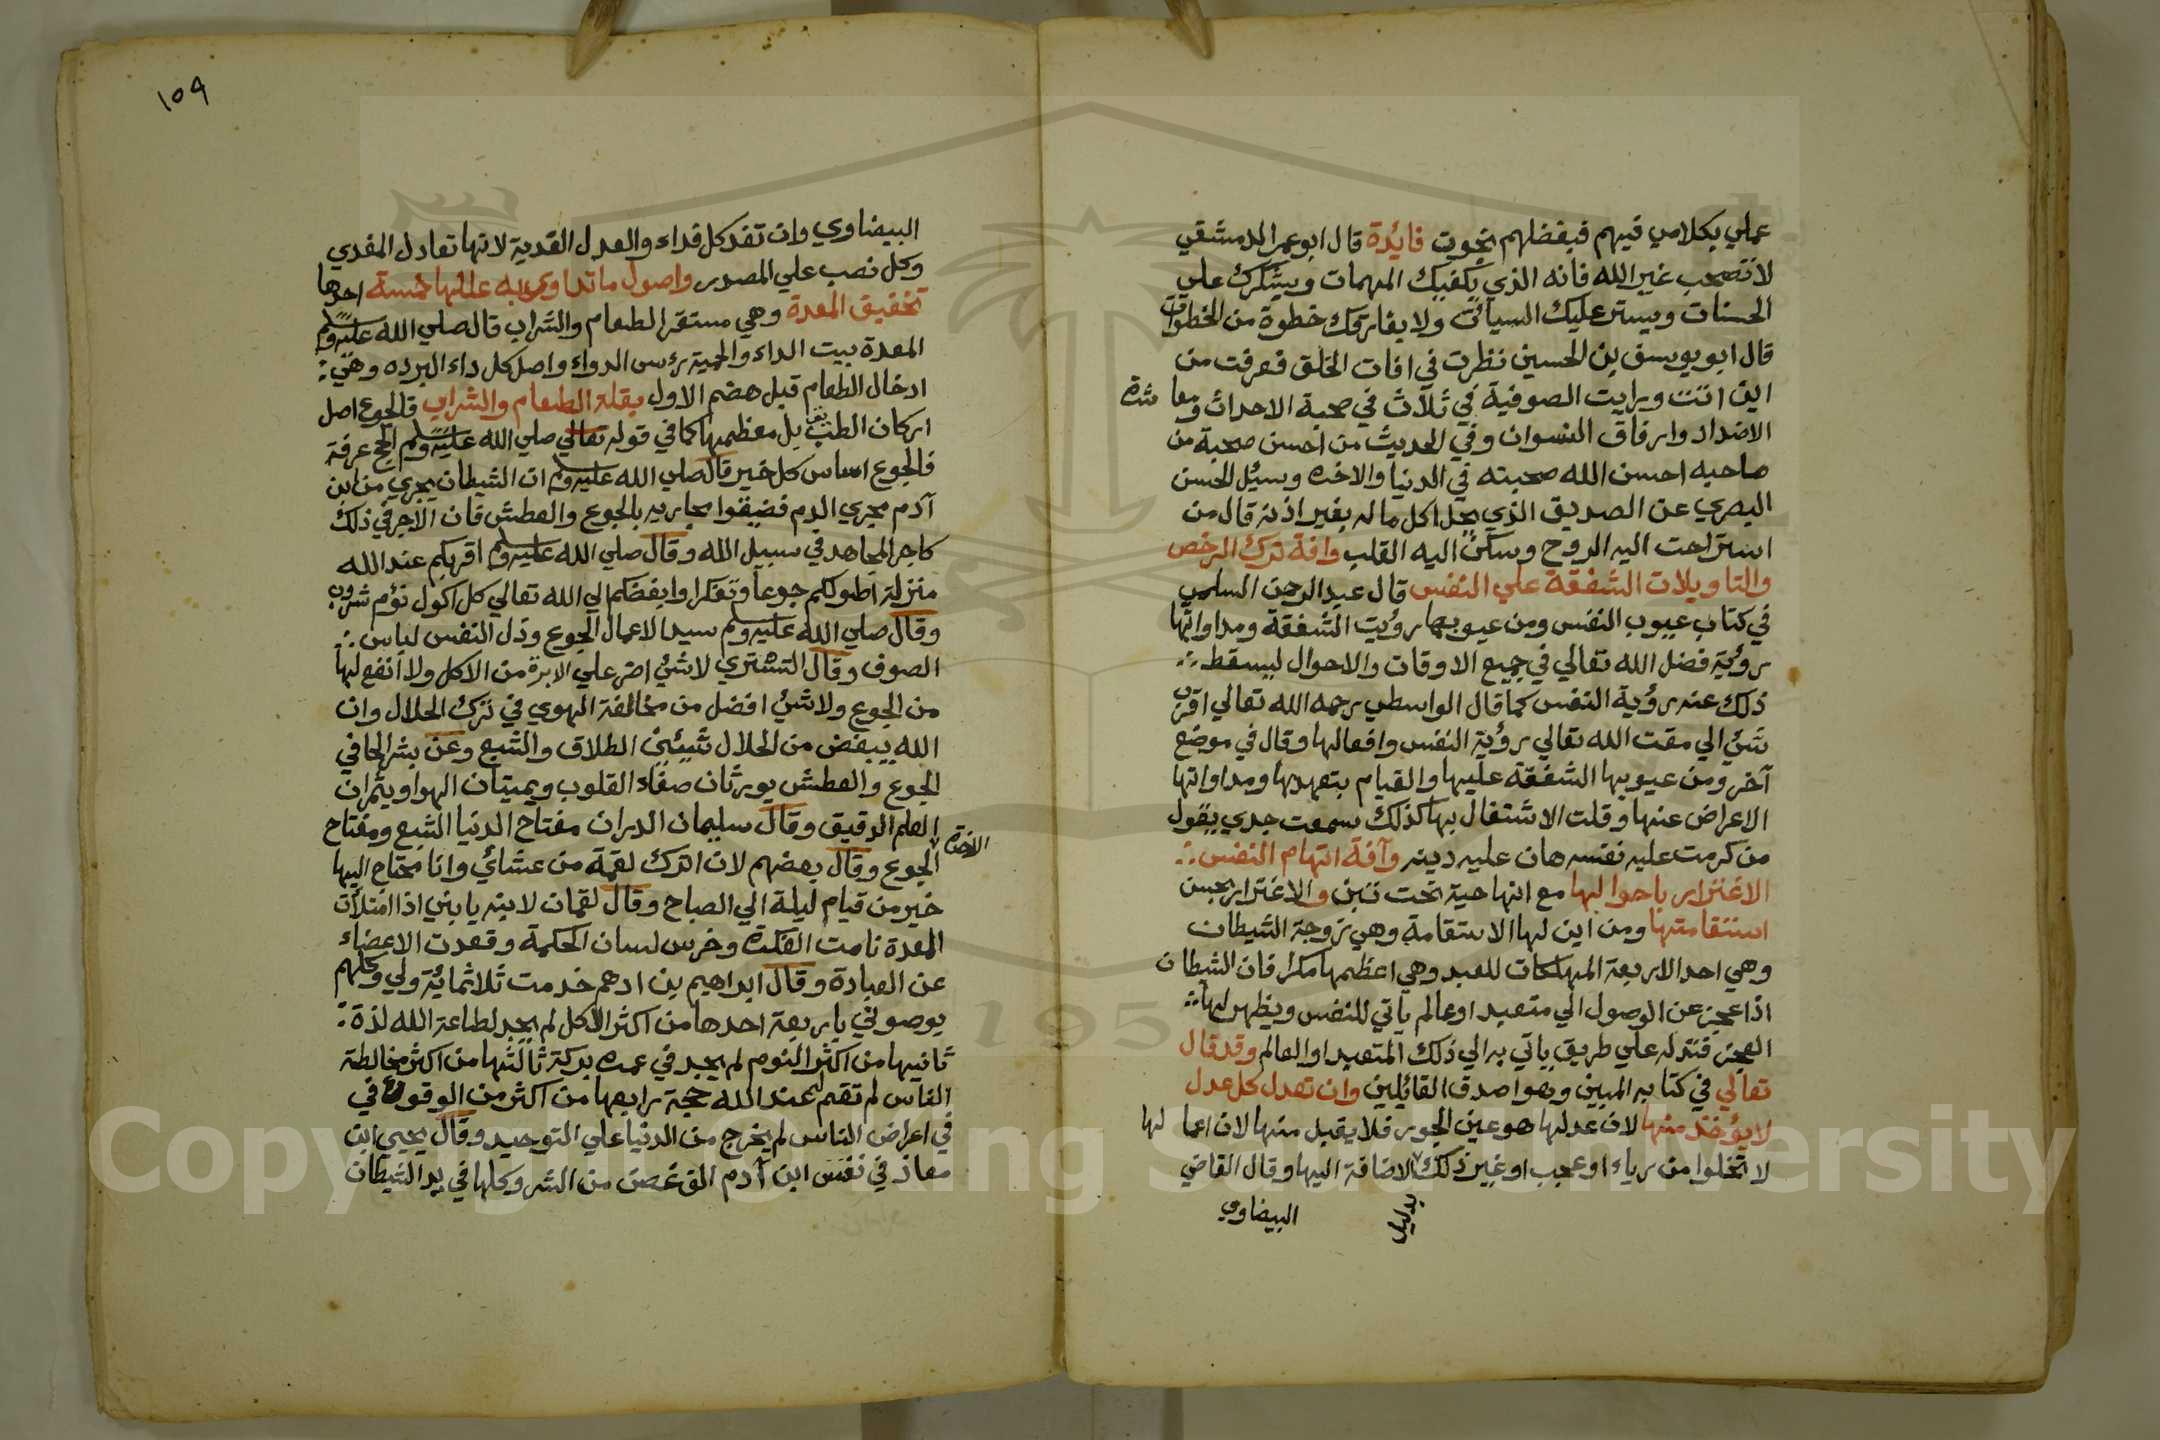 عملي بكلامي فيهم فيفضلهم بخوت فايدة قال ابو عمر الدمشقي
لا تصحب غير الله فانه الذي يكفيك المهمات ويشكرك على
الحسنات ويستر عليك السيات ولا يفارقك خطوة من الخطوات
قال ابو يوسف بن الحسين نظرت في افات الخلق فعرفت من
اين اتت ورايت الصوفية في ثلاث في صحبة الاحداث ومعاشرة
الاضداد وارفاق النسوان وفي الحديث من احسن صحبة من
صاحبه احسن الله صحبته في الدنيا والاخره وسيئل الحسن
البصري عن الصديق الذي يحل اكل ماله بغير اذنه قال من
استراحت اليه الروح وسكن اليه القلب وافة ترك الرخص
والتاويلات الشفقة علي النفس قال عبد الرحمن السلمي
في كتاب عيوب النفس ومن عيوبها رؤيت الشفقة ومداواتها
رؤية فضل الله تعالي في جميع الاوقات والاحوال ليسقط
ذلك عنه رؤية النفس كما قال الواسطي رحمه الله تعالي اقرب
شئ الي مقت الله تعالي رؤية النفس وافعالها وقال في موضع
آخر ومن عيوبها الشفقة عليها والقيام بتعهدها ومداواتها
الاعراض عنها وقلت الاشتغال بها كذلك سمعت جدي يقول
من كرمت عليه نفسه هان عليه دينه وآفة اتهام النفس
الاغترار باحوالها مع انها حية تحت تبن والاغترار بحسن
استقامتها ومن اين لها الاستقامة وهي زوجة الشيطان
وهي احد الاربعة المهلكات للعبد وهي اعظمها مكرا فان الشيطان
اذا عجز عن الوصول الي متعبد او عالم ياتي للنفس ويظهر لها
العجز فتدله علي طريق ياتي به الي ذلك المتعبد او العالم وقد قال
تعالي في كتابه المبين وهو اصدق القائلين وان تعدل كل عدل
لا يؤخذ منها لان عدلها هو عين الجور فلا يقبل منها لان اعمالها
لا تخلوا من رياء او عجب او غير ذلك بدليل الاضافة اليها وقال القاضي
البيضاوي
١٠٩
البيضاوي وان تفد كل فداء والعدل الفدية لانها تعادل المفدي
وكل نصب علي المصدر واصول ما تداوى به عللها خمسة احدها
تخفيق المعدة وهي مستقر الطعام والشراب قال صلي الله عليه وسلم
المعدة بيت الداء والحمية رئس الدواء واصل كل داء البرده وهي
ادخال الطعام قبل هضم الاول بقلة الطعام والشراب فالجوع اصل
اركان الطب بل معظمها كما في قوله تعالي صلي الله عليه وسلم الحج عرفة
فالجوع اساس كل خير قال صلي الله عليه وسلم ان الشيطان يجري من ابن
آدم مجري الدم فضيقوا مجاريه بالجوع والعطش فان الاجر في ذلك
كاجر المجاهد في سبيل الله وقال صلي الله عليه وسلم اقربكم عند الله
منزلة اطولكم جوعا وتفكرا وابغضكم الي الله تعالي كل اكول نؤم شروب
وقال صلي الله عليه وسلم سيد الاعمال الجوع وذل النفس لباس
الصوف وقال التشتري لا شئ اضر علي الابرة من الاكل ولا انفع لها
من الجوع ولا شئ افضل من مخالفة الهوي في ترك الحلال وان
الله يبغض من الحلال شيئين الطلاق والشبع وعن بشر الحافي
الجوع والعطش يورثان صفاء القلوب ويميتان الهوا ويثمران
العلم الدقيق وقال سليمان الدران مفتاح الدنيا الشبع ومفتاح
الاخرة الجوع وقال بعضهم لان اترك لقمة من عشائي وانا محتاج اليها
خير من قيام ليلة الي الصباح وقال لقمان لابنه يا بني اذا امتلات
المعدة نامت الفكرة وخرس لسان الحكمة وقعدت الاعضاء
عن العبادة وقال ابراهيم بن ادهم خدمت ثلاثمائة ولي وكلهم
يوصوني باربعة احدها من اكثر الاكل لم يجد لطاعة الله لذة
ثانيها من اكثر النوم لم يجد في عمره بركة ثالثها من اكثر مخالطة
الناس لم تقم له عند الله حجة رابعها من اكثر من الوقوع في
في اعراض الناس لم يخرج من الدنيا علي التوحيد وقال يحيي ابن
معاذ في نفس ابن آدم الف غصن من الشر وكلها في يد الشيطان